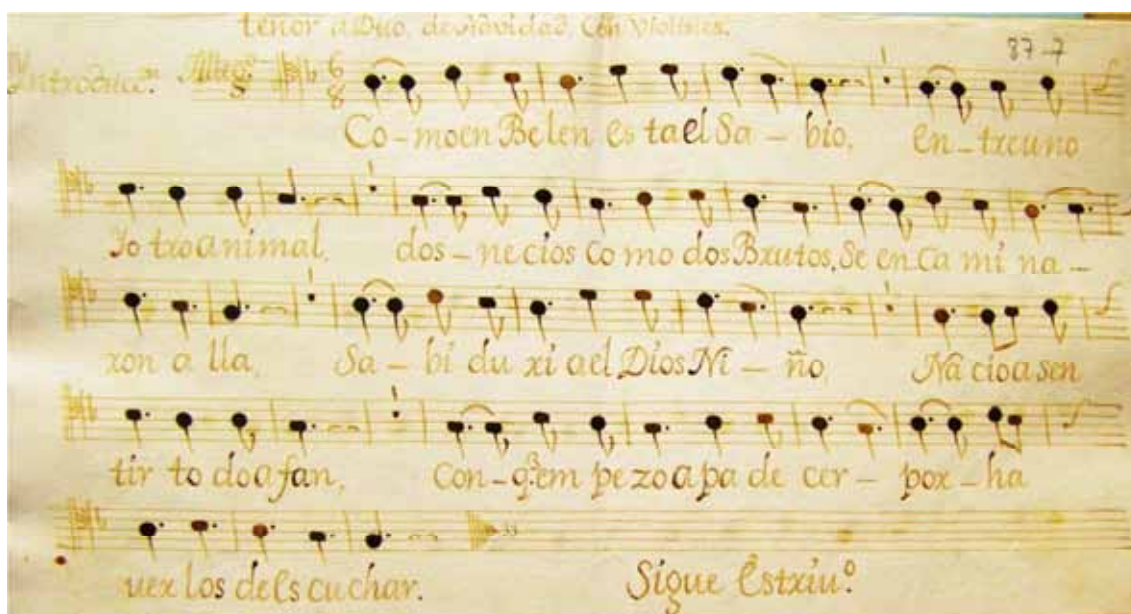 tenor a Duo, de Navidad, Con Violines.
87-7
Introducc.ⁿ Alleg.º 6 8
Co-mo en Belen es ta el Sa-bio, en-tre uno
Yo tro animal, dos-necios Co mo dos Brutos, Se en Ca mi na-
ron a lla, Sa-bi du ri a el Dios Ni-ño, Na cio a sen
tir to do a fan, Con-q.ᵉ em pe zo a pa de cer-por-ha
ver los de Es cu char. Sigue Estriv.º